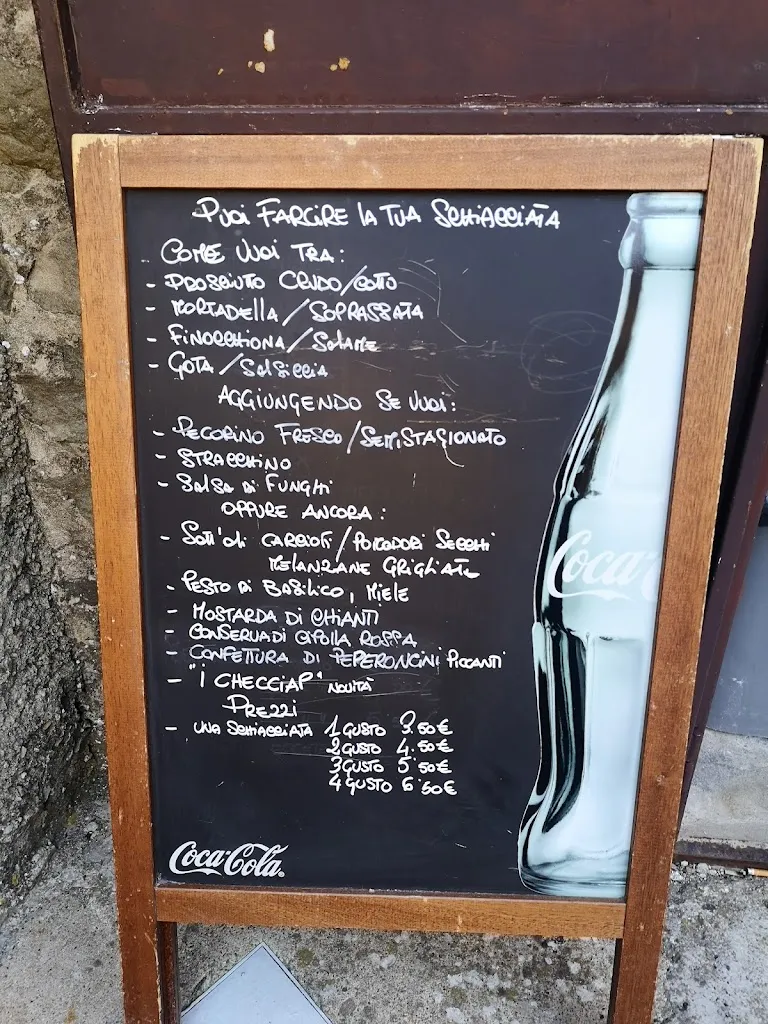 PUOI FARCIRE LA TUA SCHIACCIATA
COME VUOI TRA:
- PROSCIUTO CRUDO/COTTO
- MORTADELLA/SOPRASSATA
- FINOCCHIONA/SALAME
- GOTA/SALSICCIA
AGGIUNGENDO SE VUOI:
- PECORINO FRESCO/SEMISTAGIONATO
- STRACCHINO
- SALSA DI FUNGHI
OPPURE ANCORA:
- SOTT'OLI CARCIOFI/POMODORI SECCHI
MELANZANE GRIGLIATE
- PESTO DI BASILICO, MIELE
- MOSTARDA DI CHIANTI
- CONSERVA DI CIPOLLA ROSSA
- CONFETTURA DI PEPERONCINI PICCANTI
- "I CHECCIAP" NOVITÀ
PREZZI
- UNA SCHIACCIATA 1 GUSTO 3.50€
2 GUSTO 4.50€
3 GUSTO 5.50€
4 GUSTO 6.50€
Coca-Cola
Coca-Cola